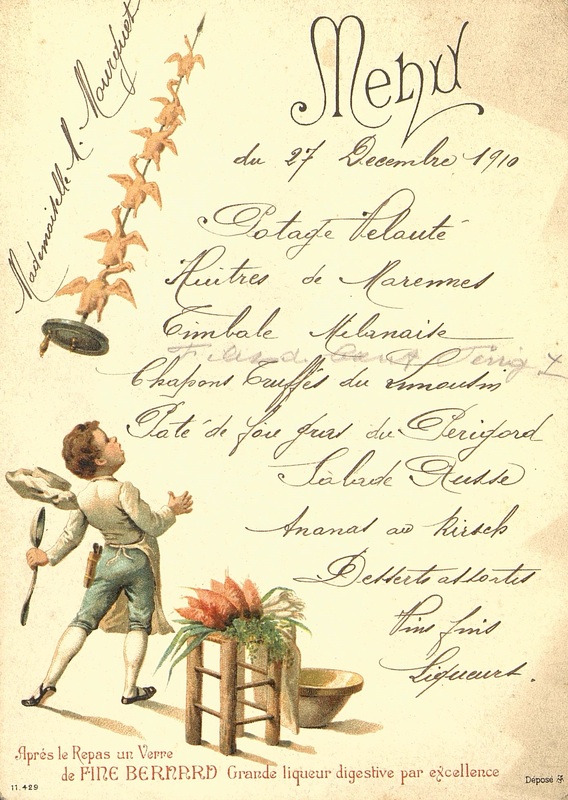 Mademoiselle
Menu
du 27 Decembre 1910
Potage Velouté
Huîtres de Marennes
Timbale Milanaise
Filets de Périg
Chapons Truffés du Limousin
Paté de foie gras du Périgord
Salade Russe
Ananas au Kirsch
Desserts assortis
Vins fins
Liqueurs.
Après le Repas un Verre
de FINE BERNARD Grande liqueur digestive par excellence
11.429
Déposé